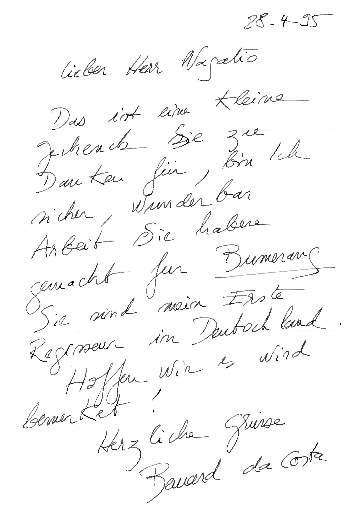 28-4-95
lieber Herr Nagatio
Das ist eine kleine
geschenck Sie zu
Danken für, bin Ich
sicher, wunderbar
Arbeit Sie habene
gemacht für Bumerang
Sie sind mein Erste
Regisseur in Deutschland.
Hoffen wir es wird
bemerket!
Herzliche Grüsse
Bernard da Costa